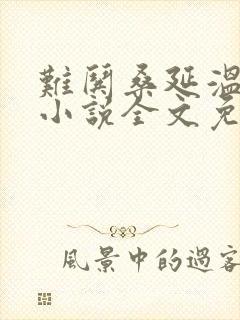 難鬨桑延溫
小說全文免
風景中的過客